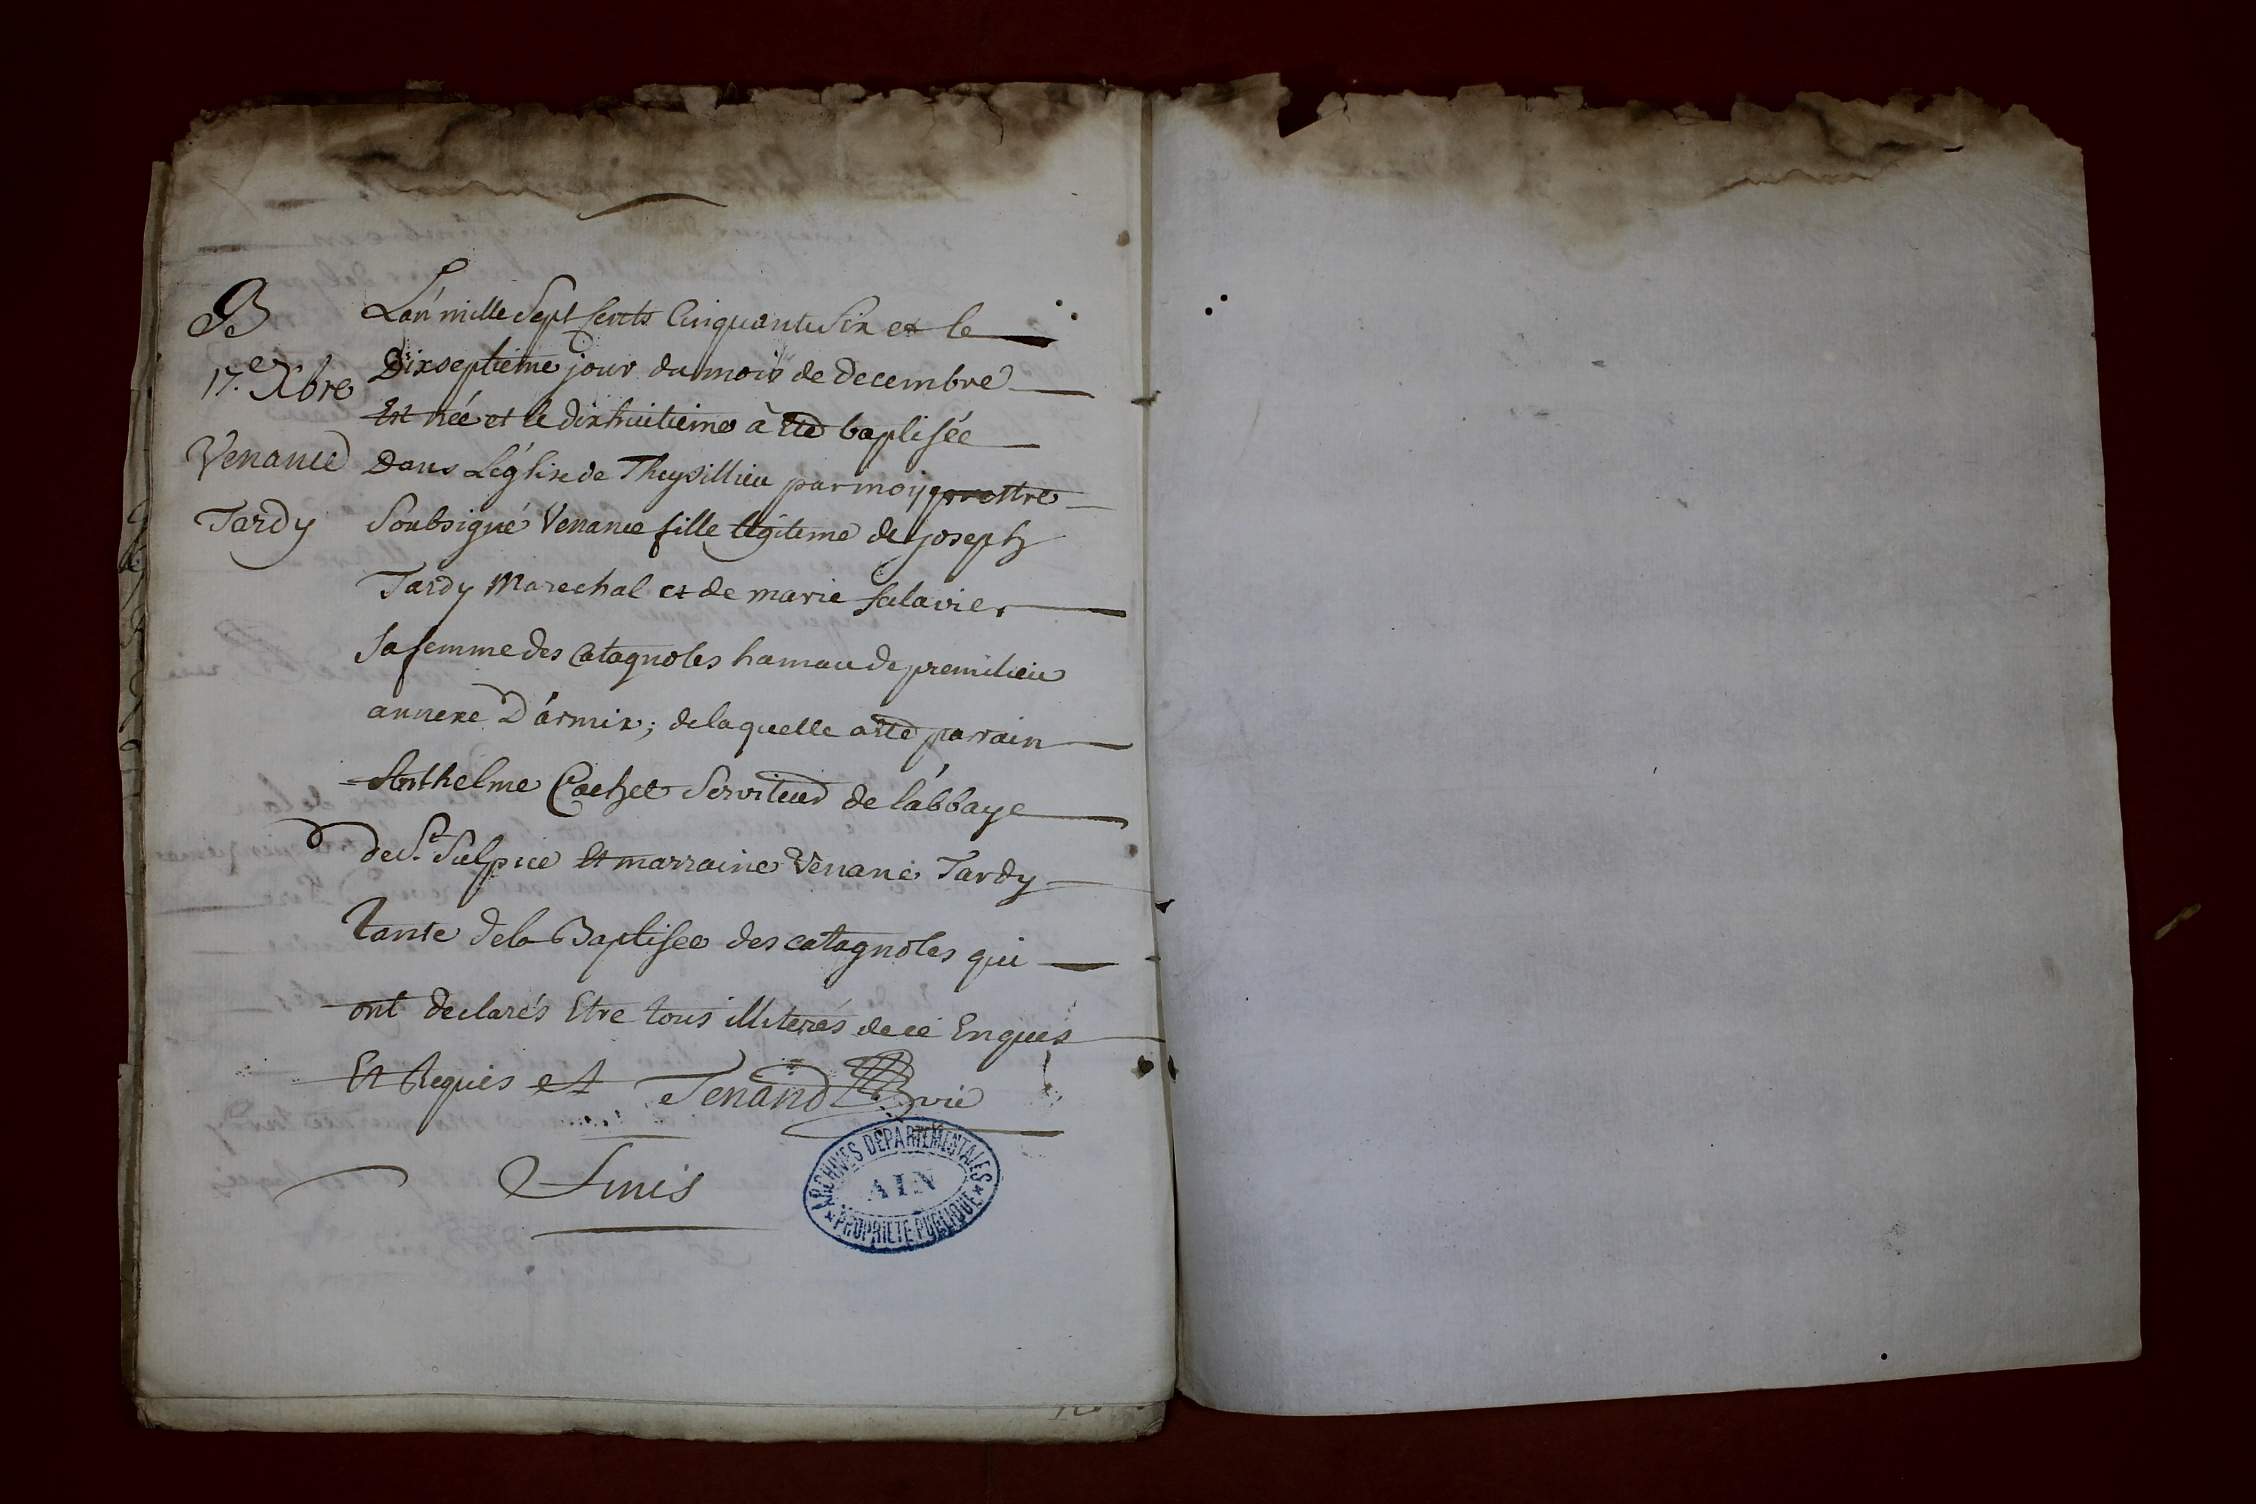 B
17.e Xbre
Venance
Tardy
L'an mille Sept Cents Cinquante Six et le
Dixseptieme jour du mois de Decembre
Est née et le dixhuitieme à eté baptisée
Dans L'église de Theysillieu par moy prettre
Soubsigné Venance fille légiteme de joseph
Tardy Marechal et de marie salavier
sa femme des Catagnoles hamau de premilieu
annexe D'armix; de laquelle a été parrain
Anthelme Cachet Serviteur de l'abbaye
de St Sulpice Et marraine Venance Tardy
tante de la Baptisée des catagnoles qui
ont declarés Etre tous illiterés de ce Enquis
Et Requis et Tenand vic
Finis
ARCHIVES DEPARTEMENTALES
AIN
* PROPRIETE PUBLIQUE *